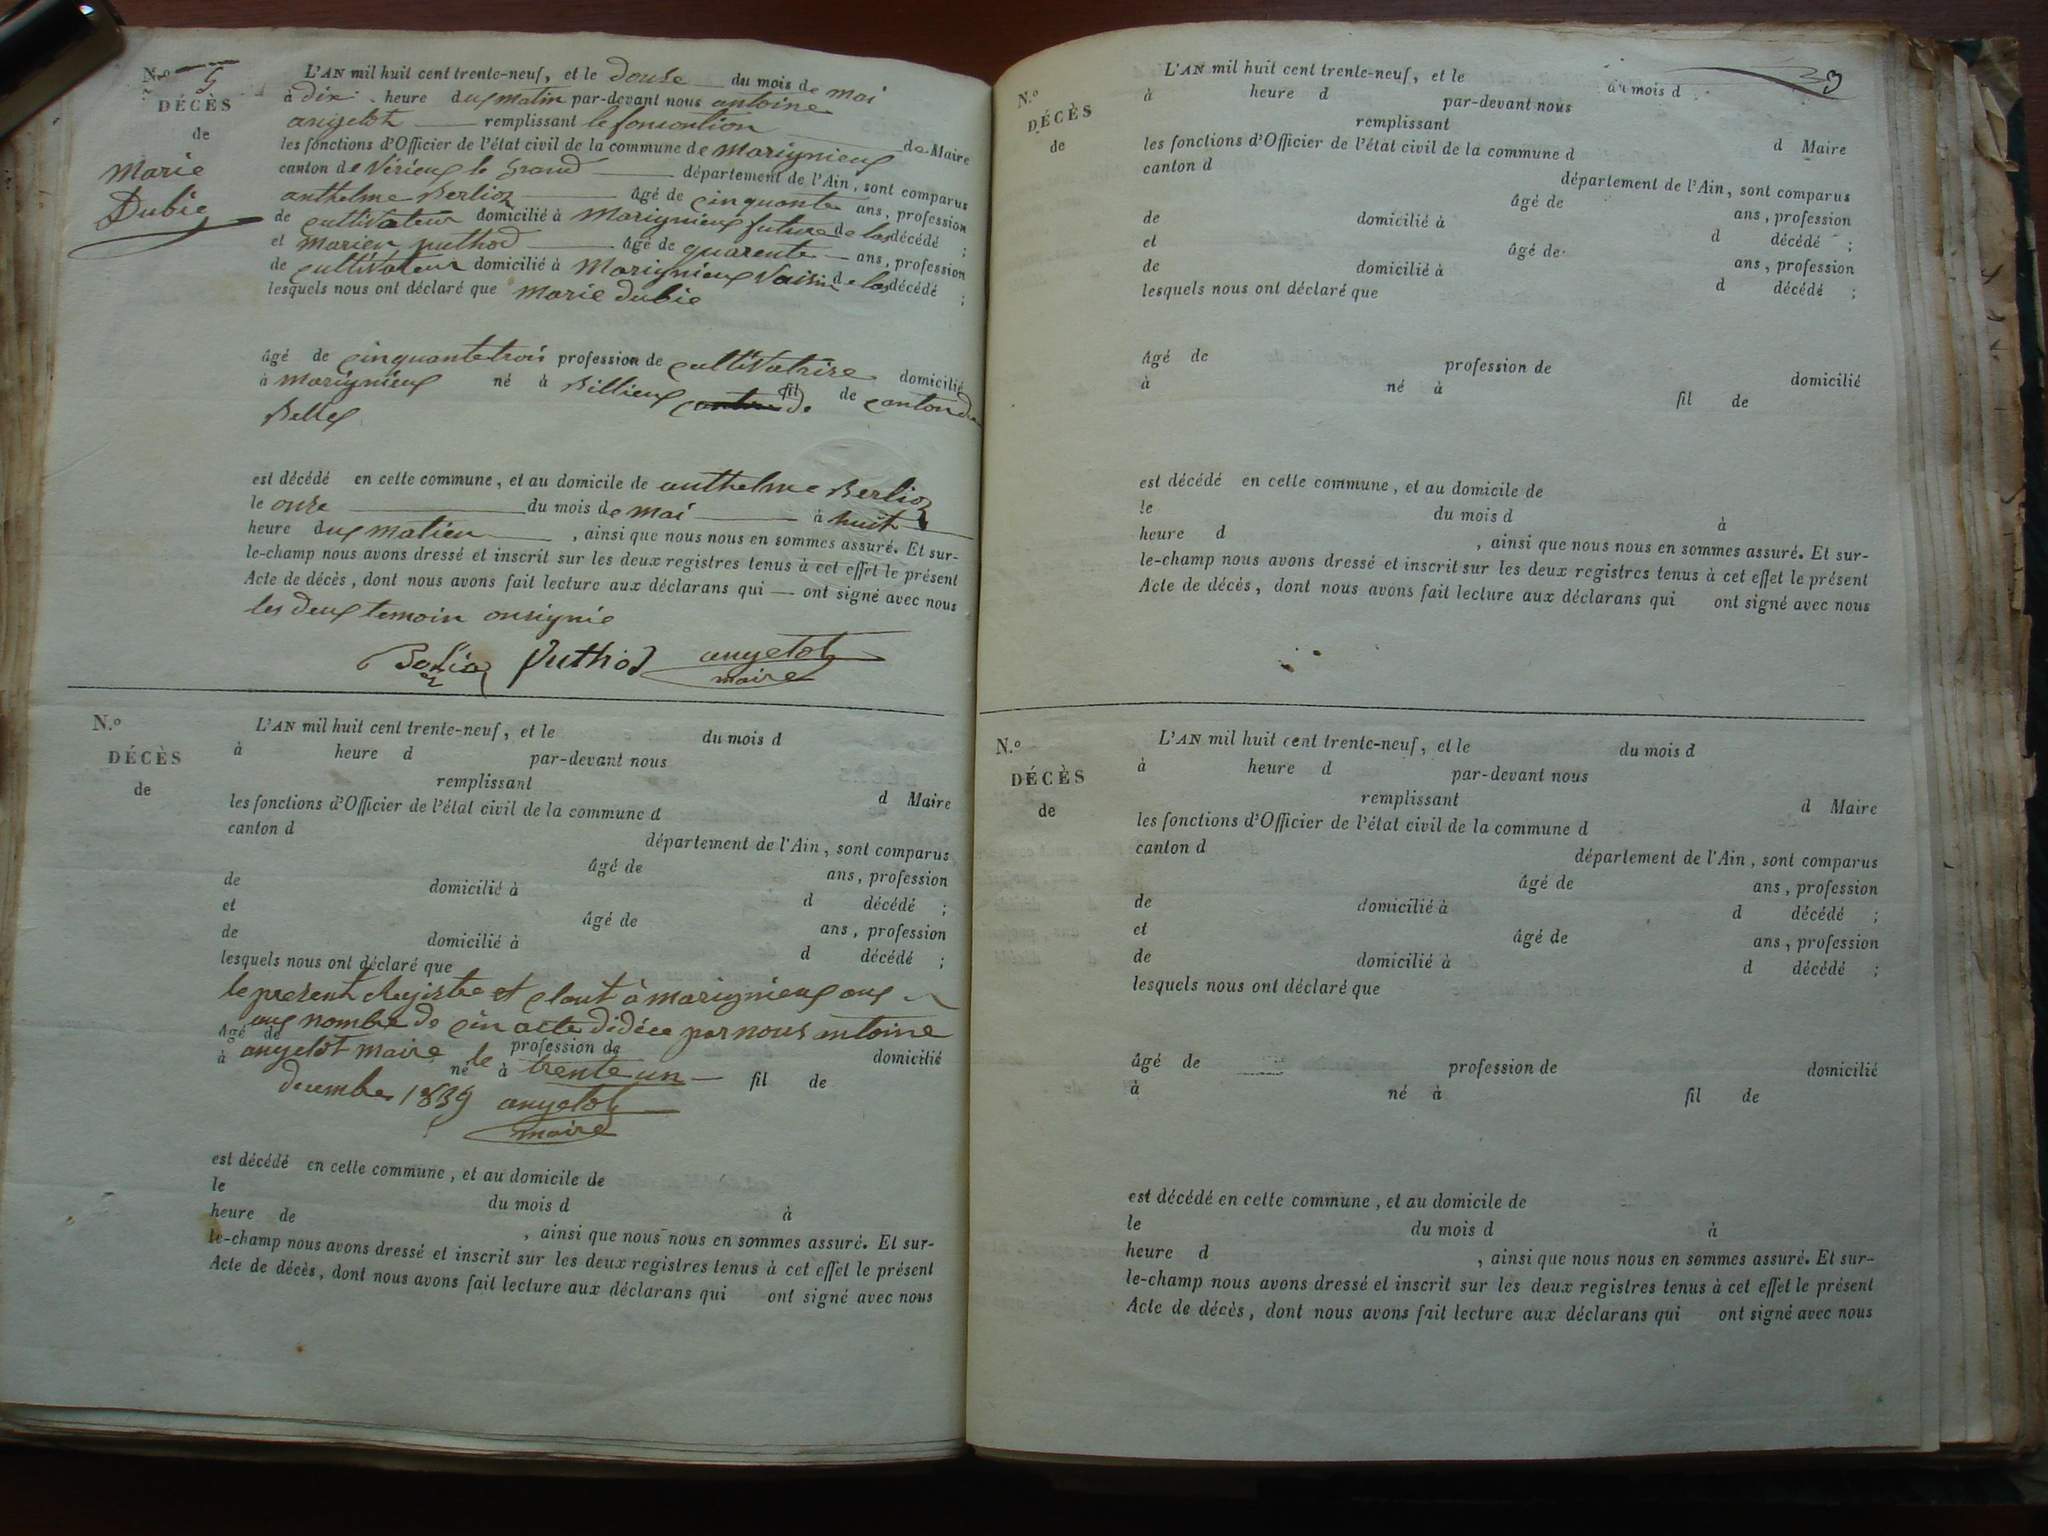 N.º 5
DÉCÈS
de
Marie
Dubie
L'AN mil huit cent trente-neuf, et le douse du mois de mai
à dix heure dux matin par-devant nous antoine
angelot remplissant le fonsontion de Maire
les fonctions d'Officier de l'état civil de la commune de Marignieux
canton de Virieux le Grand département de l'Ain, sont comparus
anthelme Berlioz âgé de cinquante ans, profession
de cultivateur domicilié à Marignieux future de la décédé ;
et Marien puthod âgé de quarente ans, profession
de cultivateur domicilié à Marignieux Voisin de la décédé ;
lesquels nous ont déclaré que Marie dubie
âgé de cinquante trois profession de cultivatrise domicilié
à Marignieux né à Billieux fil de canton de
Belley
est décédé en cette commune, et au domicile de anthelme Berlioz
le onse du mois de mai à huit
heure dux matien , ainsi que nous nous en sommes assuré. Et sur-
le-champ nous avons dressé et inscrit sur les deux registres tenus à cet effet le présent
Acte de décès, dont nous avons fait lecture aux déclarans qui — ont signé avec nous
les deux temoin onsignie
Berlioz Puthod angelot
maire
N.º
DÉCÈS
de
L'AN mil huit cent trente-neuf, et le du mois d
à heure d par-devant nous
remplissant d Maire
les fonctions d'Officier de l'état civil de la commune d
canton d département de l'Ain, sont comparus
âgé de ans, profession
de domicilié à d décédé ;
et âgé de ans, profession
de domicilié à d décédé ;
lesquels nous ont déclaré que
le present Registre et clout à marignieux aux
aux nombre de cin acte didéce par nous antoine
âgé de profession de domicilié
angelot maire le trente un
à né à fil de
decembre 1839 angelot
maire
est décédé en cette commune, et au domicile de
le du mois d à
heure de , ainsi que nous nous en sommes assuré. Et sur-
le-champ nous avons dressé et inscrit sur les deux registres tenus à cet effet le présent
Acte de décès, dont nous avons fait lecture aux déclarans qui ont signé avec nous
3
N.º
DÉCÈS
de
L'AN mil huit cent trente-neuf, et le du mois d
à heure d par-devant nous
remplissant d Maire
les fonctions d'Officier de l'état civil de la commune d
canton d département de l'Ain, sont comparus
âgé de ans, profession
de domicilié à d décédé ;
et âgé de ans, profession
de domicilié à d décédé ;
lesquels nous ont déclaré que
âgé de profession de domicilié
à né à fil de
est décédé en cette commune, et au domicile de
le du mois d à
heure d , ainsi que nous nous en sommes assuré. Et sur-
le-champ nous avons dressé et inscrit sur les deux registres tenus à cet effet le présent
Acte de décès, dont nous avons fait lecture aux déclarans qui ont signé avec nous
N.º
DÉCÈS
de
L'AN mil huit cent trente-neuf, et le du mois d
à heure d par-devant nous
remplissant d Maire
les fonctions d'Officier de l'état civil de la commune d
canton d département de l'Ain, sont comparus
âgé de ans, profession
de domicilié à d décédé ;
et âgé de ans, profession
de domicilié à d décédé ;
lesquels nous ont déclaré que
âgé de profession de domicilié
à né à fil de
est décédé en cette commune, et au domicile de
le du mois d à
heure d , ainsi que nous nous en sommes assuré. Et sur-
le-champ nous avons dressé et inscrit sur les deux registres tenus à cet effet le présent
Acte de décès, dont nous avons fait lecture aux déclarans qui ont signé avec nous